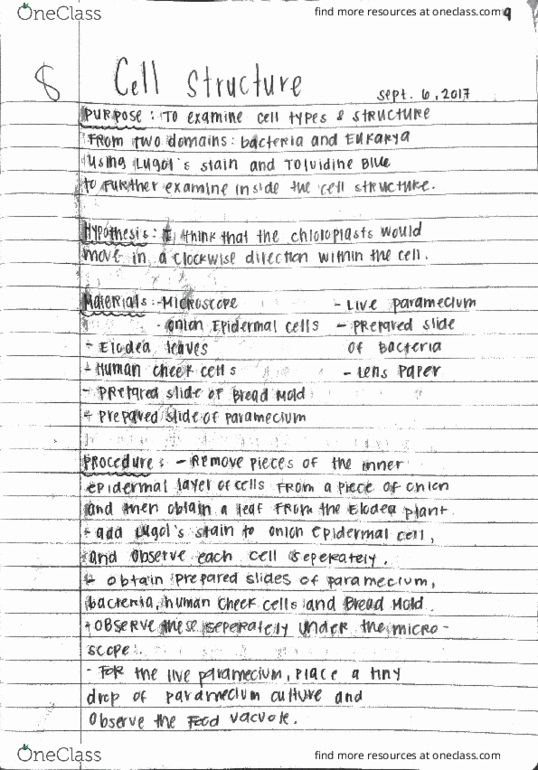 OneClass
find more resources at oneclass.com
9
8 Cell Structure
Sept. 6, 2017
Purpose: To examine cell types & structure
from two domains: bacteria and Eukarya
using Lugol's stain and Toluidine Blue
to further examine inside the cell structure.
Hypothesis: I think that the chloroplasts would
move in a clockwise direction within the cell.
Materials: - Microscope - Live paramecium
- onion Epidermal cells - Prepared slide
- Elodea leaves of Bacteria
- Human cheek cells - Lens Paper
- Prepared slide of Bread Mold
- Prepared slide of paramecium
Procedure: - Remove pieces of the inner
epidermal layer of cells from a piece of onion
and then obtain a leaf from the Elodea plant.
- add Lugol's stain to onion epidermal cell,
and observe each cell seperately.
- obtain prepared slides of paramecium,
bacteria, human cheek cells and Bread Mold.
- observe these seperately under the micro-
scope.
- For the live paramecium, place a tiny
drop of paramecium culture and
observe the food vacuole.
OneClass
find more resources at oneclass.com